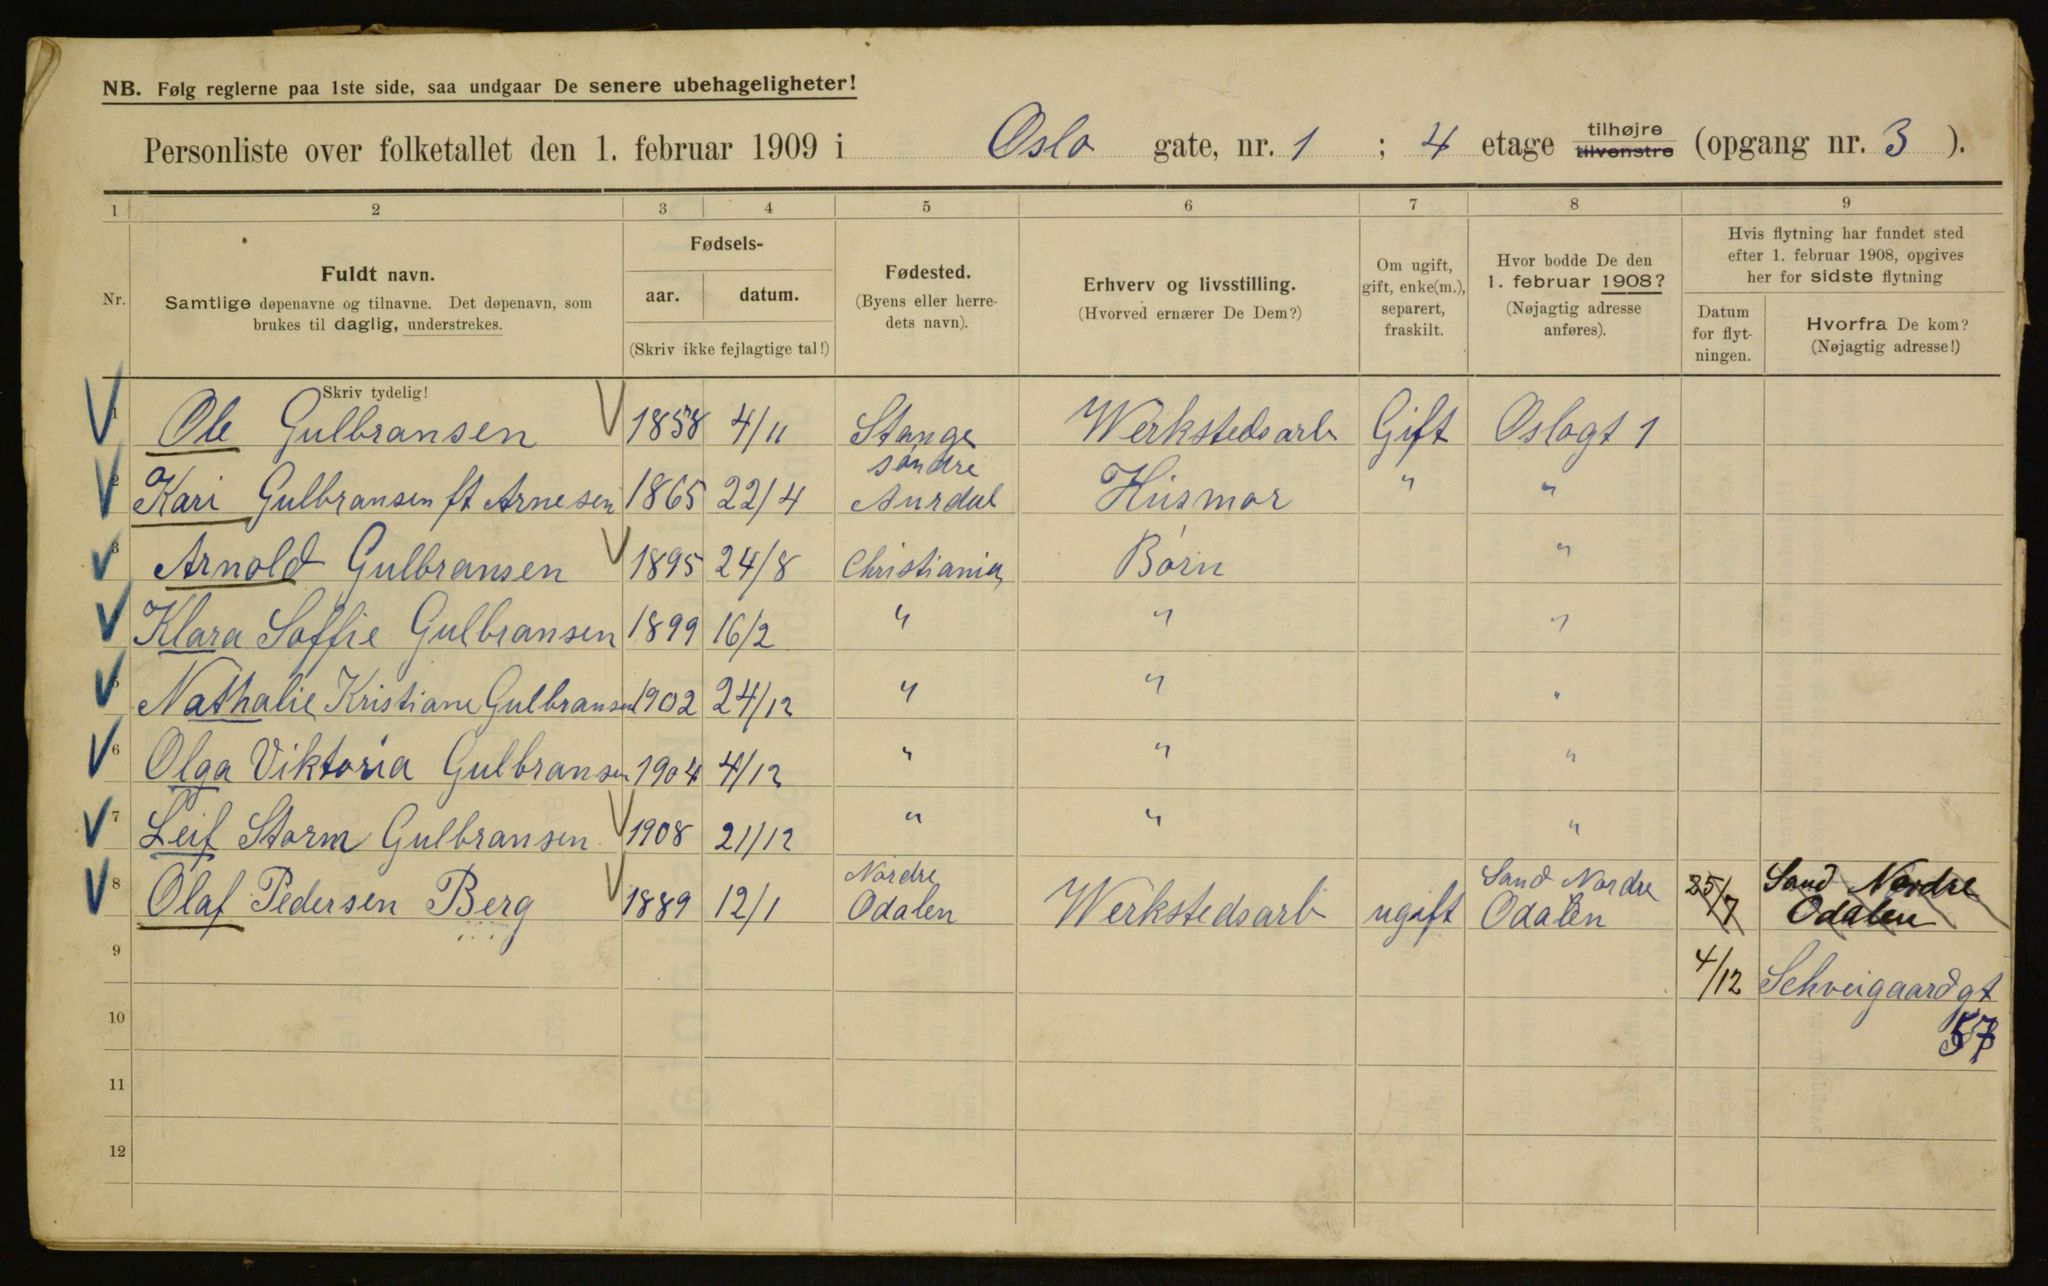 NB. Følg reglerne paa 1ste side, saa undgaar De senere ubehageligheter!
Personliste over folketallet den 1. februar 1909 i Oslo gate, nr. 1 ; 4 etage tilhøjre tilvenstre (opgang nr. 3 ).
1 2 3 4 5 6 7 8 9
Nr.
Fuldt navn.
Samtlige døpenavne og tilnavne. Det døpenavn, som
brukes til daglig, understrekes.
Fødsels-
aar. datum.
(Skriv ikke fejlagtige tal!)
Fødested.
(Byens eller herre-
dets navn).
Erhverv og livsstilling.
(Hvorved ernærer De Dem?)
Om ugift,
gift, enke(m.),
separert,
fraskilt.
Hvor bodde De den
1. februar 1908?
(Nøjagtig adresse
anføres).
Hvis flytning har fundet sted
efter 1. februar 1908, opgives
her for sidste flytning
Datum
for flyt-
ningen.
Hvorfra De kom?
(Nøjagtig adresse!)
Skriv tydelig!
1 Ole Gulbransen 1858 4/11 Stange Werkstedsarb Gift Oslogt 1
2 Kari Gulbransen ft Arnesen 1865 22/4 søndre Aurdal Húsmor " "
3 Arnold Gulbransen 1895 24/8 Christiania Børn "
Klara Soffie Gulbransen 1899 16/2 " " "
5 Nathalie Kristiane Gulbransen 1902 24/12 " " "
6 Olga Viktoria Gulbransen 1904 4/12 " " "
7 Leif Storm Gulbransen 1908 21/12 " " "
8 Olaf Pedersen Berg 1889 12/1 Nordre Odalen Werkstedsarb ugift Sand Nordre Odalen 25/7 Sand Nordre Odalen
9 4/12 Schveigaardgt
10 57
11
12